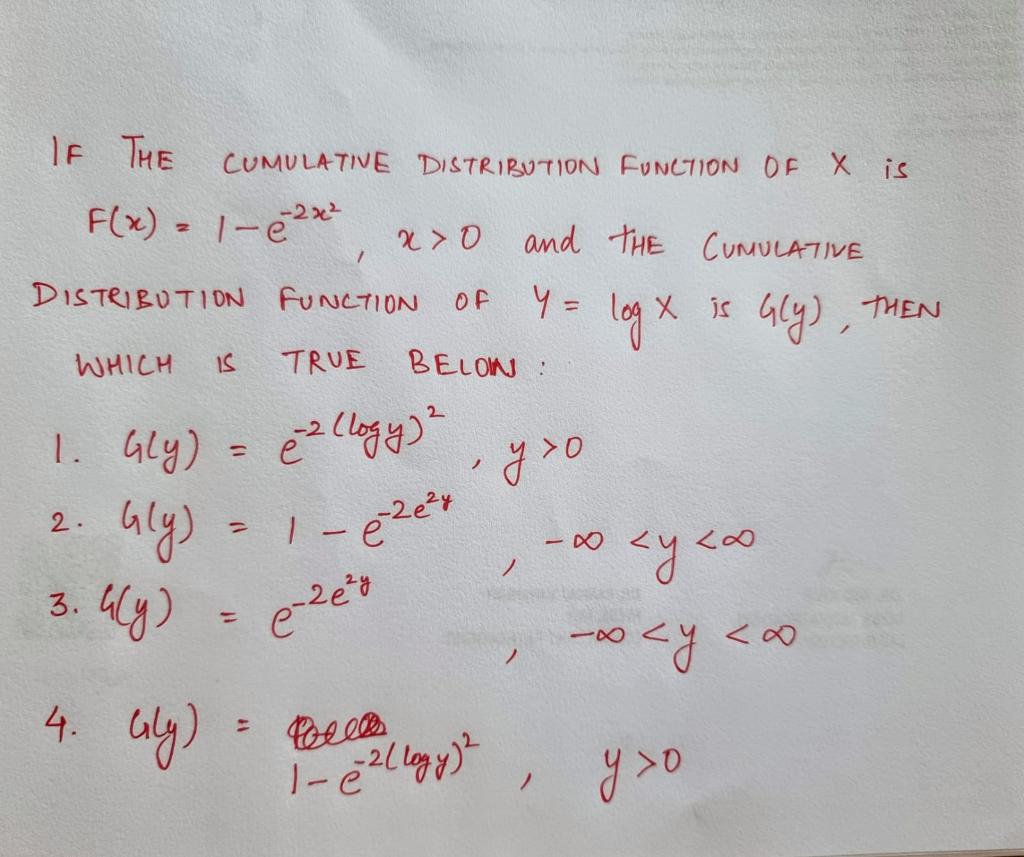 IF THE CUMULATIVE DISTRIBUTION FUNCTION OF X is
F(x) = 1-e^{-2x^2}, x>0 and THE CUMULATIVE
DISTRIBUTION FUNCTION OF Y = log X is G(y), THEN
WHICH IS TRUE BELOW :
1. G(y) = e^{-2(log y)^2}, y>0
2. G(y) = 1 - e^{-2e^{2y}}, -∞ <y <∞
3. G(y) = e^{-2e^{2y}}, -∞ <y <∞
4. G(y) =
1-e^{-2(log y)^2}, y>0